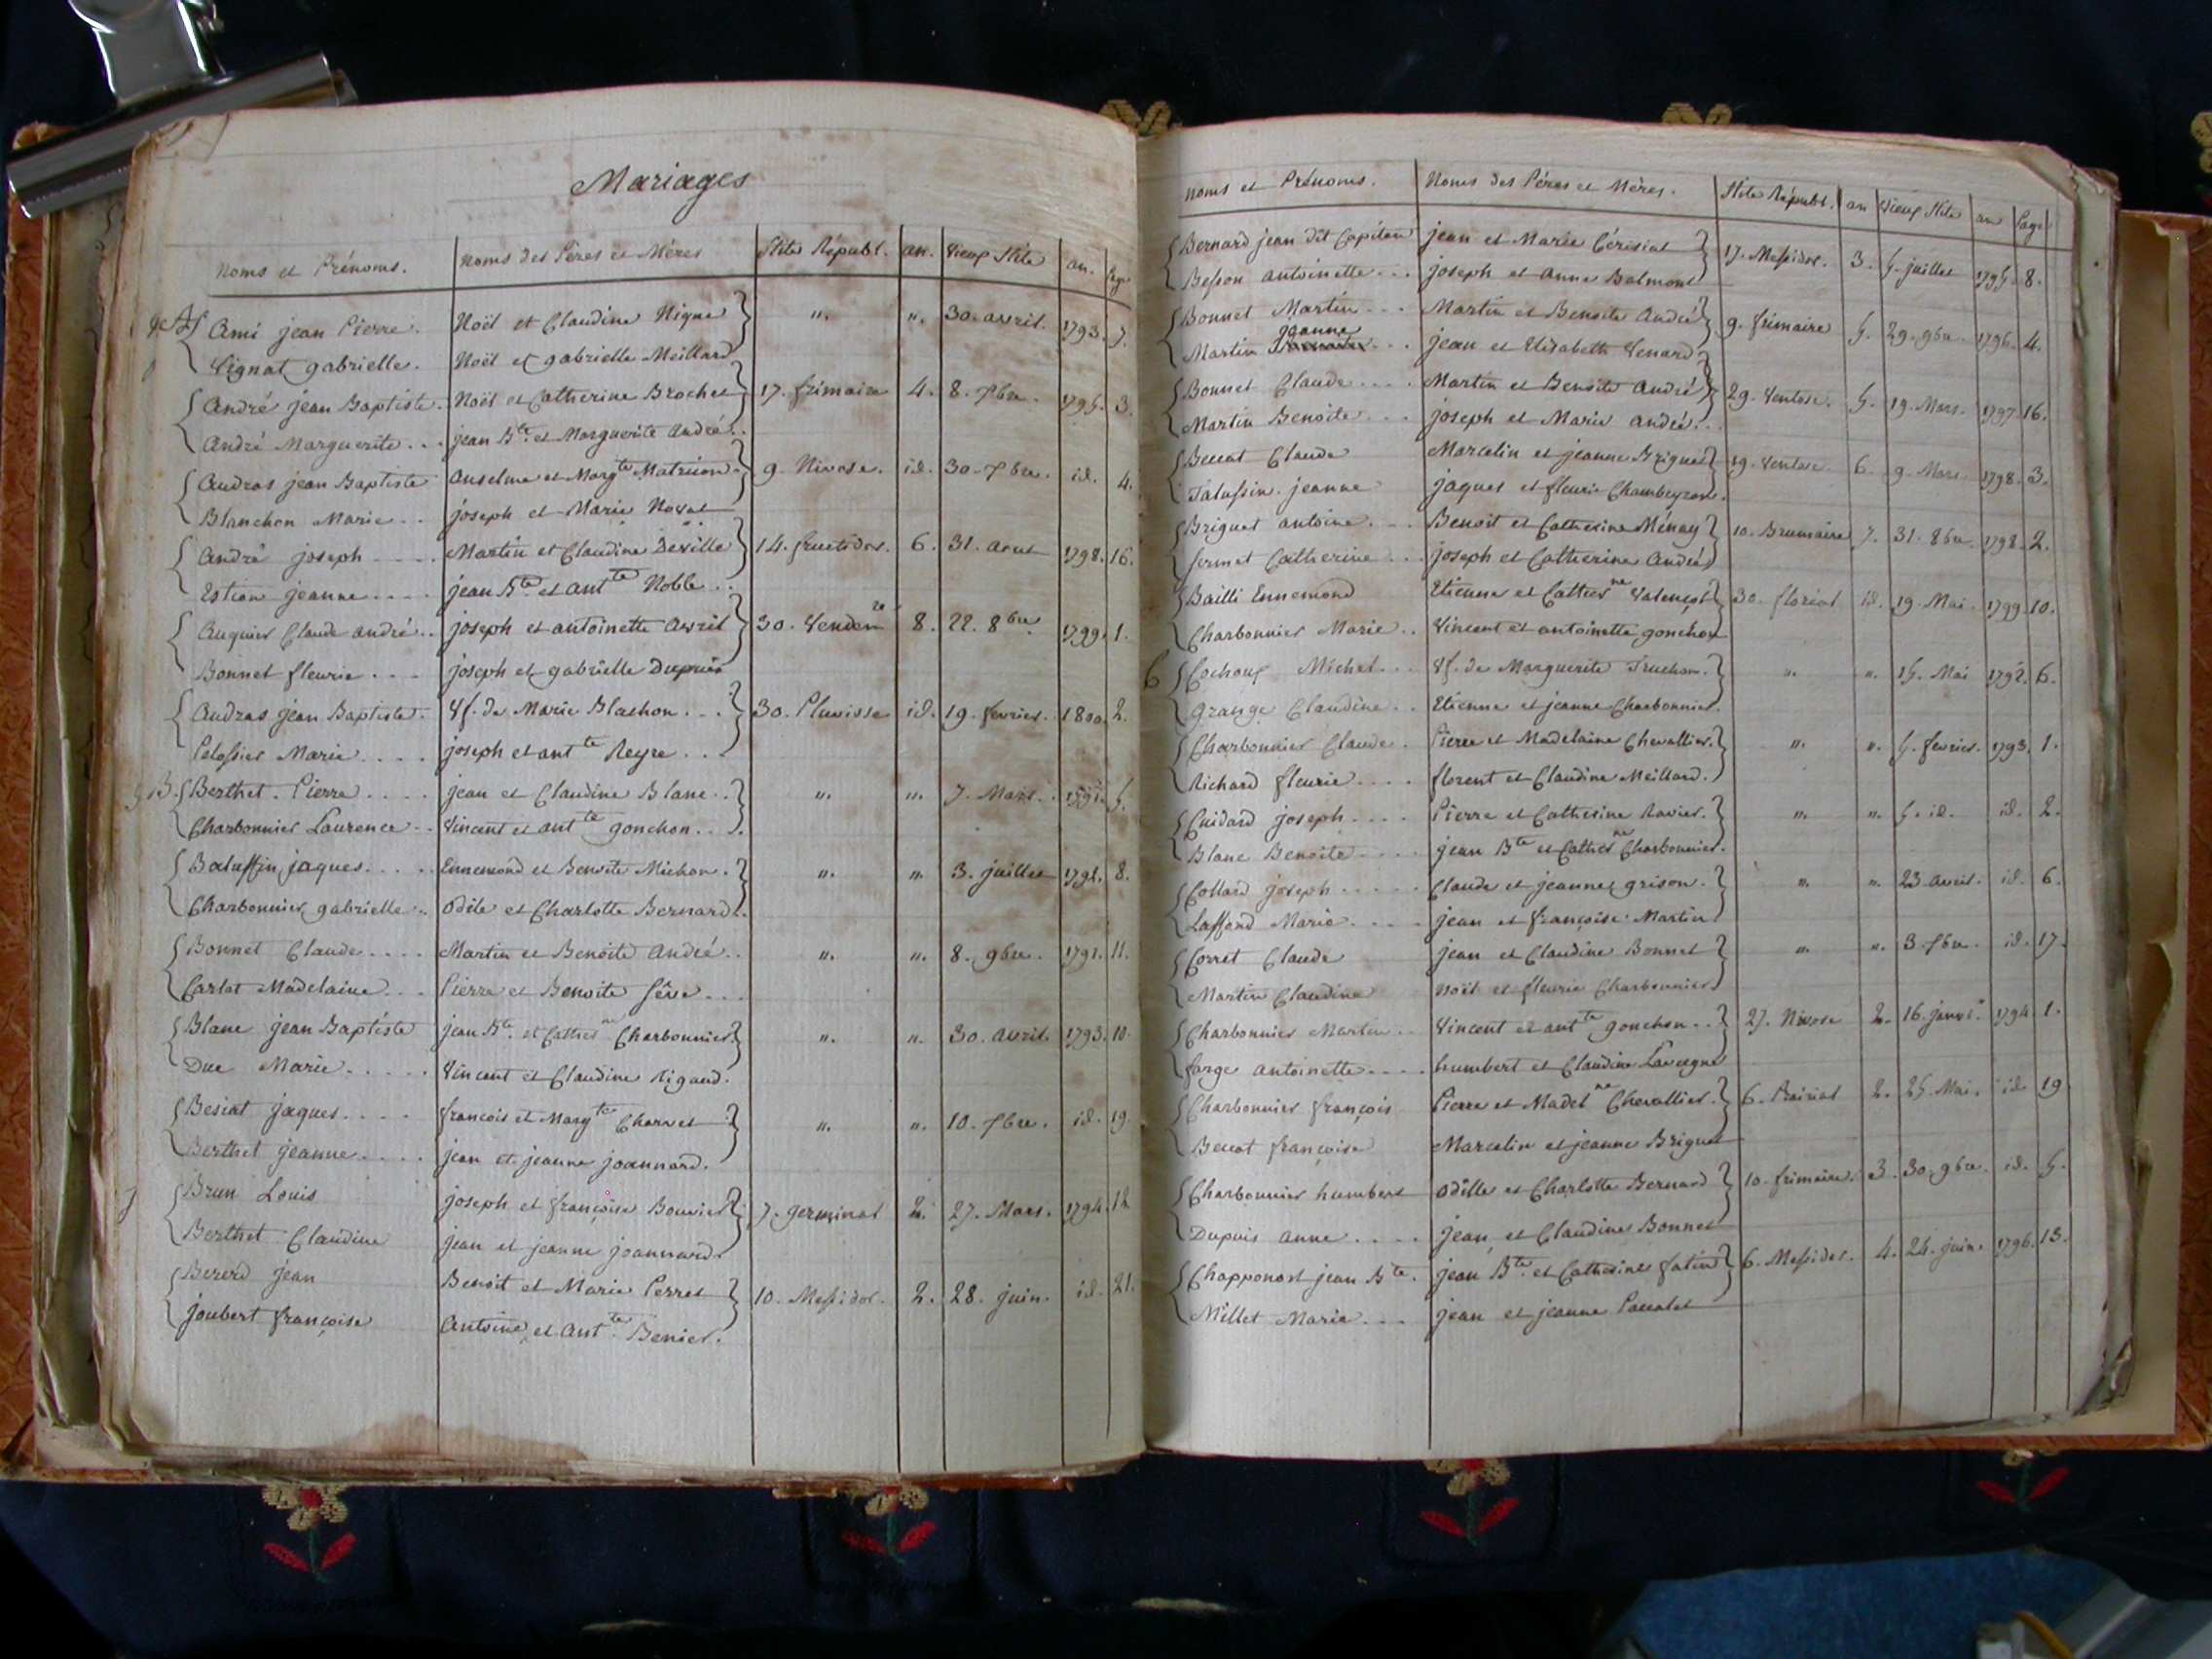 Mariages
Noms et Prénoms. Noms des Pères et Mères Stile Républ. an. Vieux Stile an. Page
A Ami jean Pierre. Noël et Claudine Nigue ". ". 30. avril. 1793. 7.
gabrielle. Noël et gabrielle Meillard
André jean Baptiste. Noël et Catherine Brochet 17. frimaire 4. 8. 7bre. 1795. 3.
André Marguerite... jean Bte. et Marguerite André..
Audras jean Baptiste Anselme et Margte Matricon 9. Nivose. id. 30. 7bre. id. 4.
Blanchon Marie.. joseph et Marie Noyat
André joseph.... Martin et Claudine Deville 14. fructidor. 6. 31. aout 1798. 16.
Estion jeanne.... jean Bte et antte Noble..
Auquier Claude andré.. joseph et antoinette Avril 30. Vendemre 8. 22. 8bre. 1799. 1.
Bonnet fleurie.... joseph et gabrielle Dupuis
Audras jean Baptiste. Vf. de Marie Blachon... 30. Pluvisse id. 19. fevrier. 1800. 2.
Pelossier Marie.... joseph et antte Reyre...
B. Berthet. Pierre.... jean et Claudine Blanc.. ". ". 7. Mars. 5.
Charbonnier Laurence.. Vincent et antte gonchon..
jaques.... Ennemond et Benoite Michon. ". ". 3. juillet 8.
Charbonnier gabrielle.. Odile et Charlotte Bernard.
Bonnet Claude.... Martin et Benoite André.. ". ". 8. 9bre. 11.
Carlat Madelaine... Pierre et Benoite sêve...
Blanc jean Baptiste jean Bte. et Catherne Charbonnier ". ". 30. avril. 1793. 10.
Duc Marie..... Vincent et Claudine Rigaud.
Besiat jaques.... françois et Margte Charvet ". ". 10. 7bre. id. 19.
Berthet jeanne.... jean et jeanne joannard.
Brun Louis joseph et françoise Bouvier 7. germinal 2. 27. Mars. 1794. 12.
Berthet Claudine jean et jeanne joannard.
Bererd jean Benoit et Marie Perret 10. Messidor. 2. 28. juin. id. 21.
joubert françoise Antoine et Antte. Benier.
Noms et Prénoms. Noms des Pères et Mères. Stile Républ. an Vieux Stile an Page
Bernard jean dit Capitan jean et Marie Cérisiat 17. Messidor. 3. 5. juillet 1795. 8.
Besson antoinette... joseph et Anne Balmont
Bonnet Martin... Martin et Benoite André 9. frimaire 5. 29. 9bre. 1796. 4.
Martin jeanne... jean et Elizabeth Venard
Bonnet Claude.... Martin et Benoite André 29. Ventose. 5. 19. Mars. 1797. 16.
Martin Benoite... joseph et Marie André..
Beccat Claude Marcelin et jeanne Briguet 19. Ventose. 6. 9. Mars. 1798. 3.
jeanne jaques et fleurie Chambeyron.
Briguet antoine... Benoit et Catherine Ménay 10. Brumaire 7. 31. 8bre. 1798. 2.
fermet Catherine... joseph et Catherine André
Bailli Ennemond Etienne et Catherne Valençot 30. floréal id. 19. Mai. 1799. 10.
Charbonnier Marie.. Vincent et antoinette gonchon
C Cochoux Michel... Vf. de Marguerite Truchon. ". ". 15. Mai 1792. 6.
Grange Claudine.. Etienne et jeanne Charbonnier.
Charbonnier Claude. Pierre et Madelaine Chevallier. ". ". 5. fevrier. 1793. 1.
Richard fleurie.... florent et Claudine Meillard.
Cuidard joseph.... Pierre et Catherine Ravier. ". ". 5. id. id. 2.
Blanc Benoite.... jean Bte et Catherne Charbonnier.
Collard joseph.... Claude et jeanne grison. ". ". 23 avril. id. 6.
Laffond Marie.... jean et françoise Martin
Corret Claude jean et Claudine Bonnet ". ". 3. 7bre. id. 17.
Martin Claudine Noël et fleurie Charbonnier
Charbonnier Martin.. Vincent et antte gonchon.. 27. Nivose 2. 16. janvr. 1794. 1.
farge antoinette.... humbert et Claudine Lavergne
Charbonnier françois Pierre et Madelne Chevallier. 6. Prairial 2. 25. Mai. id. 19
Beccat françoise Marcelin et jeanne Briguet
Charbonnier humbert Odille et Charlotte Bernard 10. frimaire. 3. 30. 9bre. id. 5.
Dupuis anne.... jean et Claudine Bonnet
Chapponost jean Bte. jean Bte. et Catherine fatin 6. Messidor. 4. 24. juin. 1796. 13.
Millet Marie... jean et jeanne Paccalet